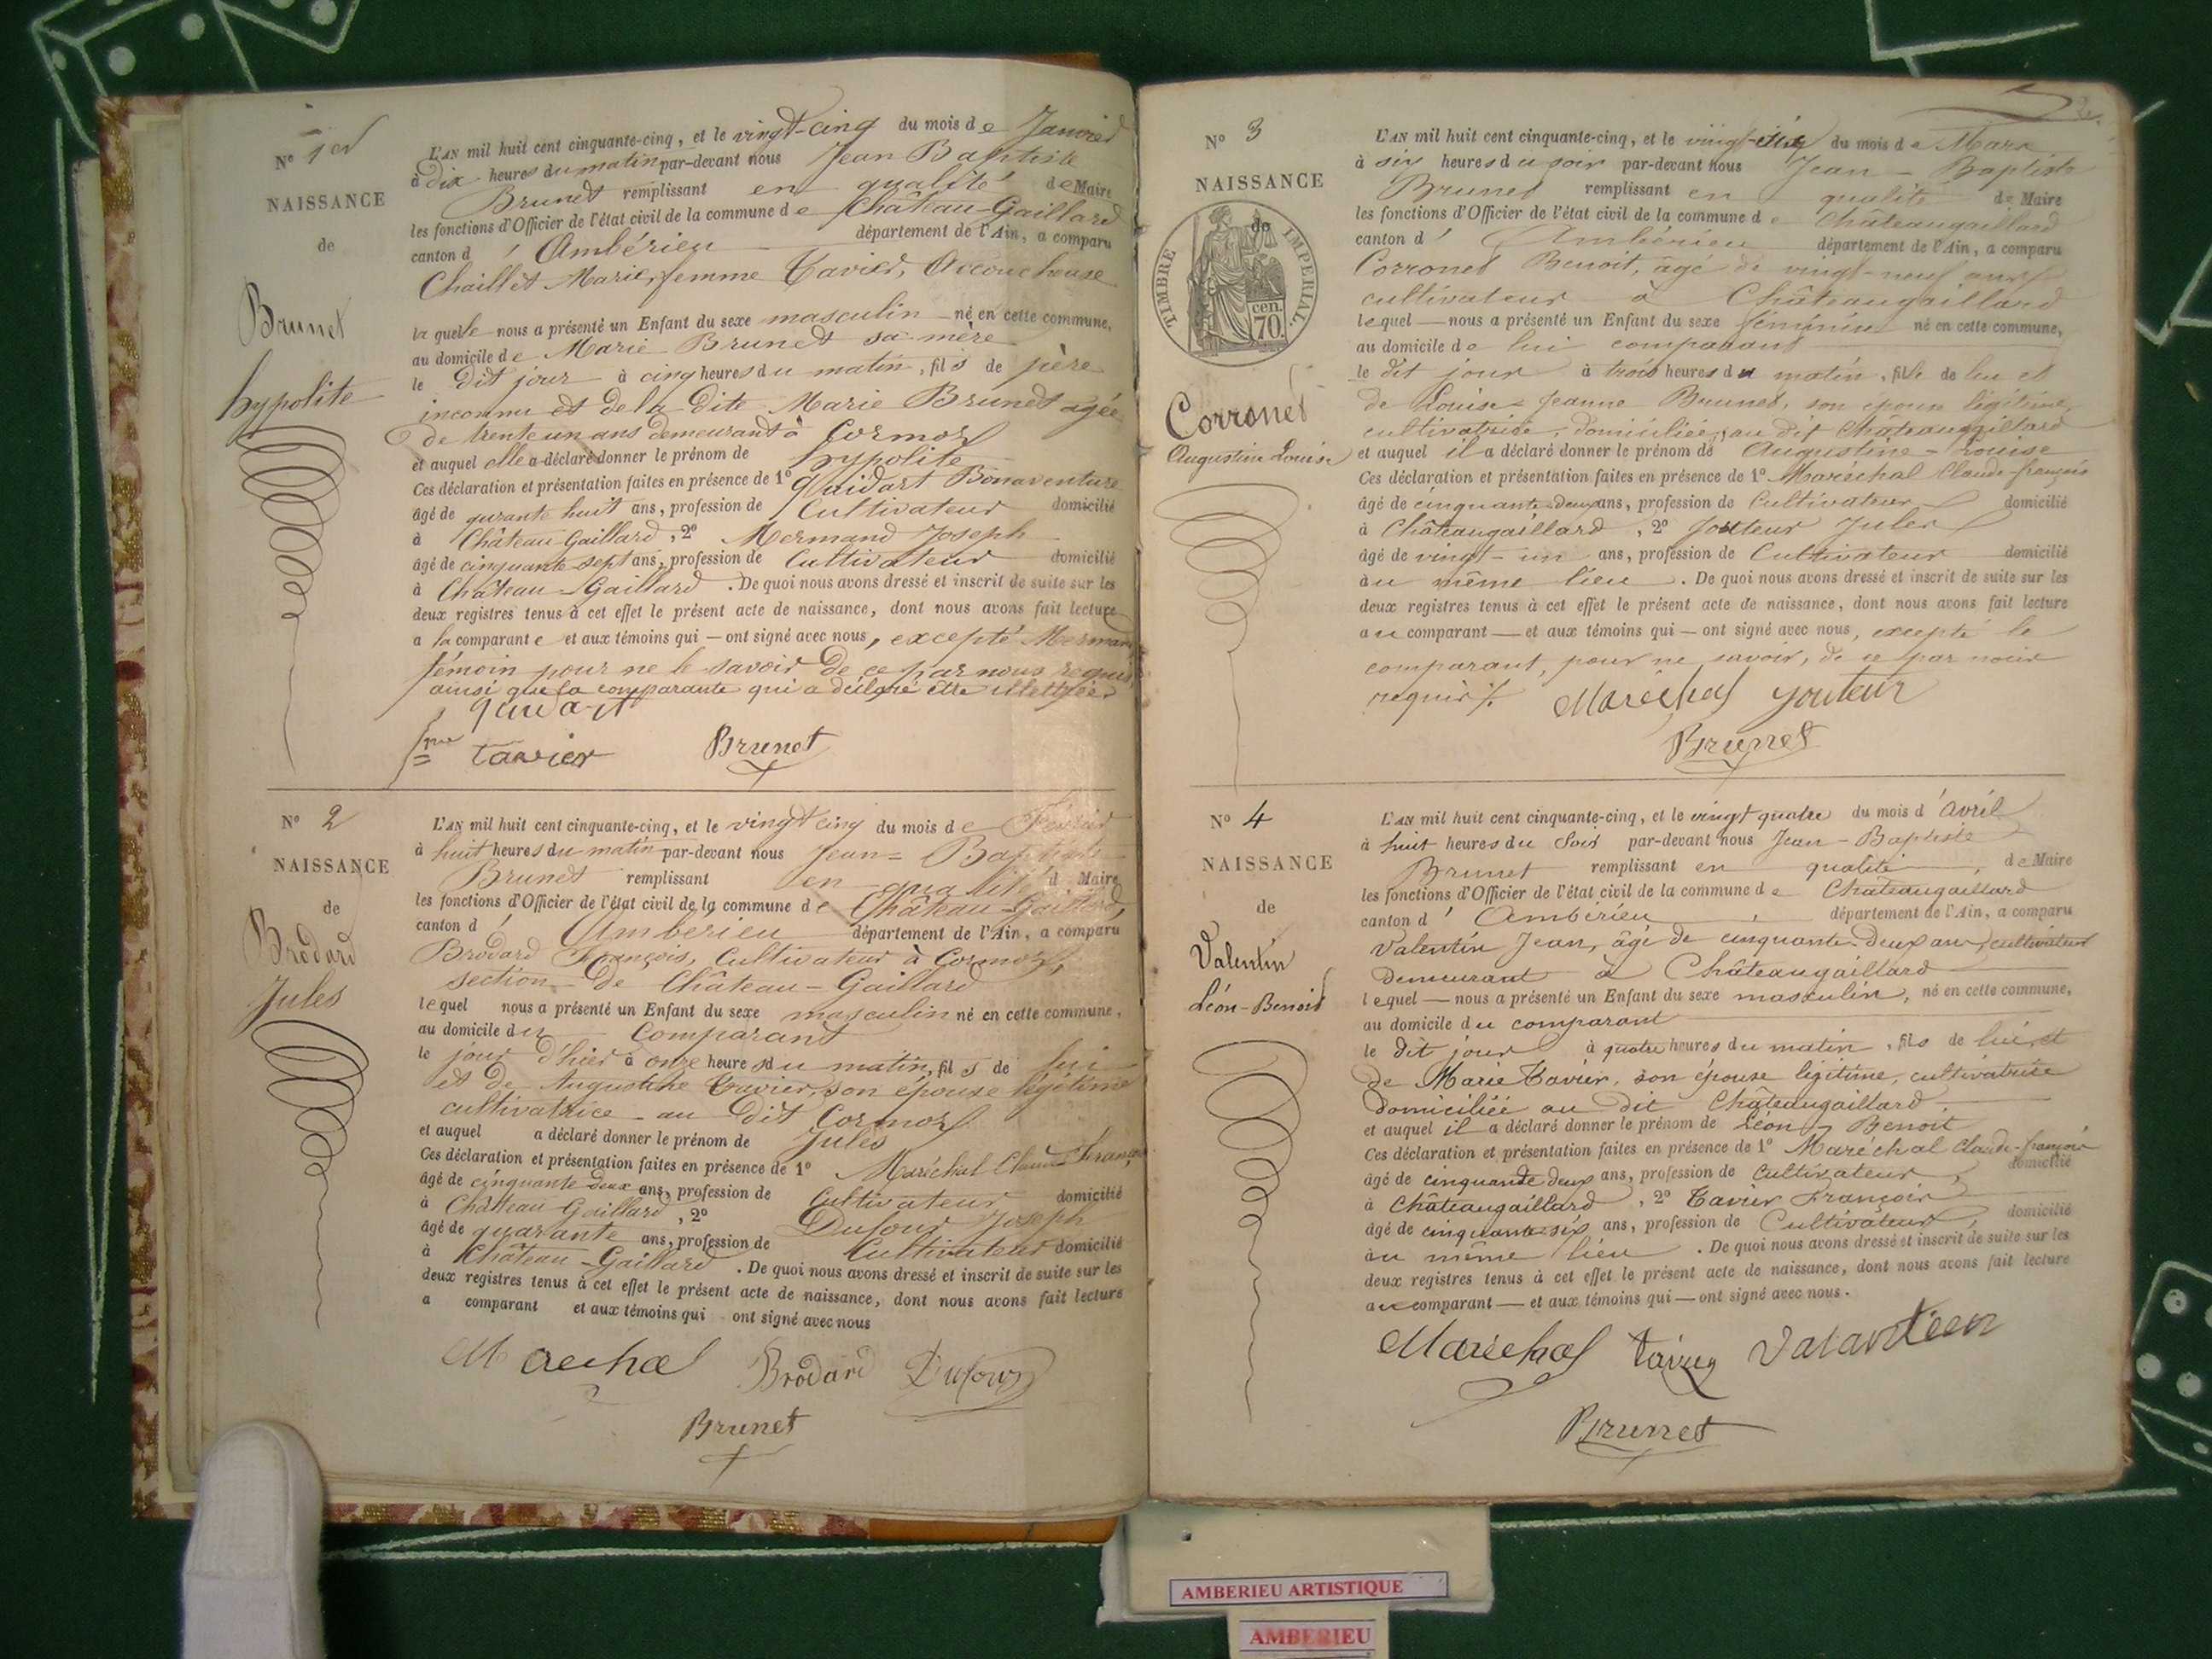 Nº 1er
NAISSANCE
de
Brunet
hypolite
L'AN mil huit cent cinquante-cinq, et le vingt-cinq du mois de Janvier
à dix heures du matin par-devant nous Jean Baptiste
Brunet remplissant en qualité de Maire
les fonctions d'Officier de l'état civil de la commune de Château-Gaillard
canton d' Ambérieu département de l'Ain, a comparu
Chaillet Marie, femme Tavier, Accoucheuse
la quelle nous a présenté un Enfant du sexe masculin né en cette commune,
au domicile de Marie Brunet sa mère
le dit jour à cinq heures du matin, fils de père
inconnu et de la dite Marie Brunet agée
de trente un ans demeurant à Cormoz
et auquel elle a déclaré donner le prénom de hypolite
Ces déclaration et présentation faites en présence de 1º quidart Bonaventure
âgé de qurante huit ans, profession de Cultivateur domicilié
à Château Gaillard, 2º Mermand Joseph
âgé de cinquante-sept ans, profession de Cultivateur domicilié
à Château-Gaillard. De quoi nous avons dressé et inscrit de suite sur les
deux registres tenus à cet effet le présent acte de naissance, dont nous avons fait lecture
a la comparante et aux témoins qui — ont signé avec nous, excepté Mermand
témoin pour ne le savoir de ce par nous requis
ainsi que la comparante qui a déclaré être illettrée
quidart
fme Tavier Brunet
Nº 2
NAISSANCE
de
Brodard
Jules
L'AN mil huit cent cinquante-cinq, et le vingt cinq du mois de Février
à huit heures du matin par-devant nous Jean-Baptiste
Brunet remplissant en qualité d Maire
les fonctions d'Officier de l'état civil de la commune de Château-Gaillard,
canton d' Ambérieu département de l'Ain, a comparu
Brodard François, Cultivateur à Cormoz,
section de Château-Gaillard
lequel nous a présenté un Enfant du sexe masculin né en cette commune,
au domicile du Comparant
le jour d'hier à onze heures du matin, fils de lui
et de Augustine Travier, son épouse légitime
cultivatrice au dit Cormoz
et auquel a déclaré donner le prénom de Jules
Ces déclaration et présentation faites en présence de 1º Maréchal Claude François
âgé de cinquante deux ans, profession de Cultivateur domicilié
à Château Gaillard, 2º Dufour Joseph
âgé de quarante ans, profession de Cultivateur domicilié
à Château-Gaillard. De quoi nous avons dressé et inscrit de suite sur les
deux registres tenus à cet effet le présent acte de naissance, dont nous avons fait lecture
a comparant et aux témoins qui ont signé avec nous
Marechal Brodard Dufour
Brunet
2
Nº 3
NAISSANCE
de
TIMBRE IMPERIAL
70 cen.
Corronet
Augustine Louise
L'AN mil huit cent cinquante-cinq, et le du mois de Mars
à six heures du soir par-devant nous Jean-Baptiste
Brunet remplissant en qualité de Maire
les fonctions d'Officier de l'état civil de la commune de Châteaugaillard
canton d' Ambérieu département de l'Ain, a comparu
Corronet Benoit, âgé de vingt-neuf ans
cultivateur à Châteaugaillard
lequel — nous a présenté un Enfant du sexe féminin né en cette commune,
au domicile de lui comparant
le dit jour à trois heures du matin, fille de lui et
de Louise-Jeanne Brunet, son épouse légitime,
cultivatrice, domiciliée au dit Châteaugaillard
et auquel il a déclaré donner le prénom de Augustine-Louise
Ces déclaration et présentation faites en présence de 1º Maréchal Claude-françois
âgé de cinquante-deux ans, profession de Cultivateur domicilié
à Châteaugaillard, 2º Jouteur Jules
âgé de vingt-un ans, profession de Cultivateur domicilié
au même lieu. De quoi nous avons dressé et inscrit de suite sur les
deux registres tenus à cet effet le présent acte de naissance, dont nous avons fait lecture
au comparant — et aux témoins qui — ont signé avec nous, excepté le
comparant, pour ne savoir, de ce par nous
requis /. Maréchal Jouteur
Brunet
Nº 4
NAISSANCE
de
Valentin
Léon-Benoit
L'AN mil huit cent cinquante-cinq, et le vingt quatre du mois d'avril
à huit heures du Soir par-devant nous Jean-Baptiste
Brunet remplissant en qualité de Maire
les fonctions d'Officier de l'état civil de la commune de Châteaugaillard
canton d' Ambérieu département de l'Ain, a comparu
Valentin Jean, âgé de cinquante-deux ans, cultivateur
demeurant à Châteaugaillard
lequel — nous a présenté un Enfant du sexe masculin, né en cette commune,
au domicile du comparant
le dit jour à quatre heures du matin, fils de lui, et
de Marie Tavier, son épouse légitime, cultivatrice
domiciliée au dit Châteaugaillard
et auquel il a déclaré donner le prénom de Léon-Benoit
Ces déclaration et présentation faites en présence de 1º Maréchal Claude-françois
âgé de cinquante deux ans, profession de Cultivateur, domicilié
à Châteaugaillard, 2º Tavier François
âgé de cinquante-six ans, profession de Cultivateur, domicilié
au même lieu. De quoi nous avons dressé et inscrit de suite sur les
deux registres tenus à cet effet le présent acte de naissance, dont nous avons fait lecture
au comparant — et aux témoins qui — ont signé avec nous.
Maréchal Tavier Valanteen
Brunet
AMBERIEU ARTISTIQUE
AMBERIEU